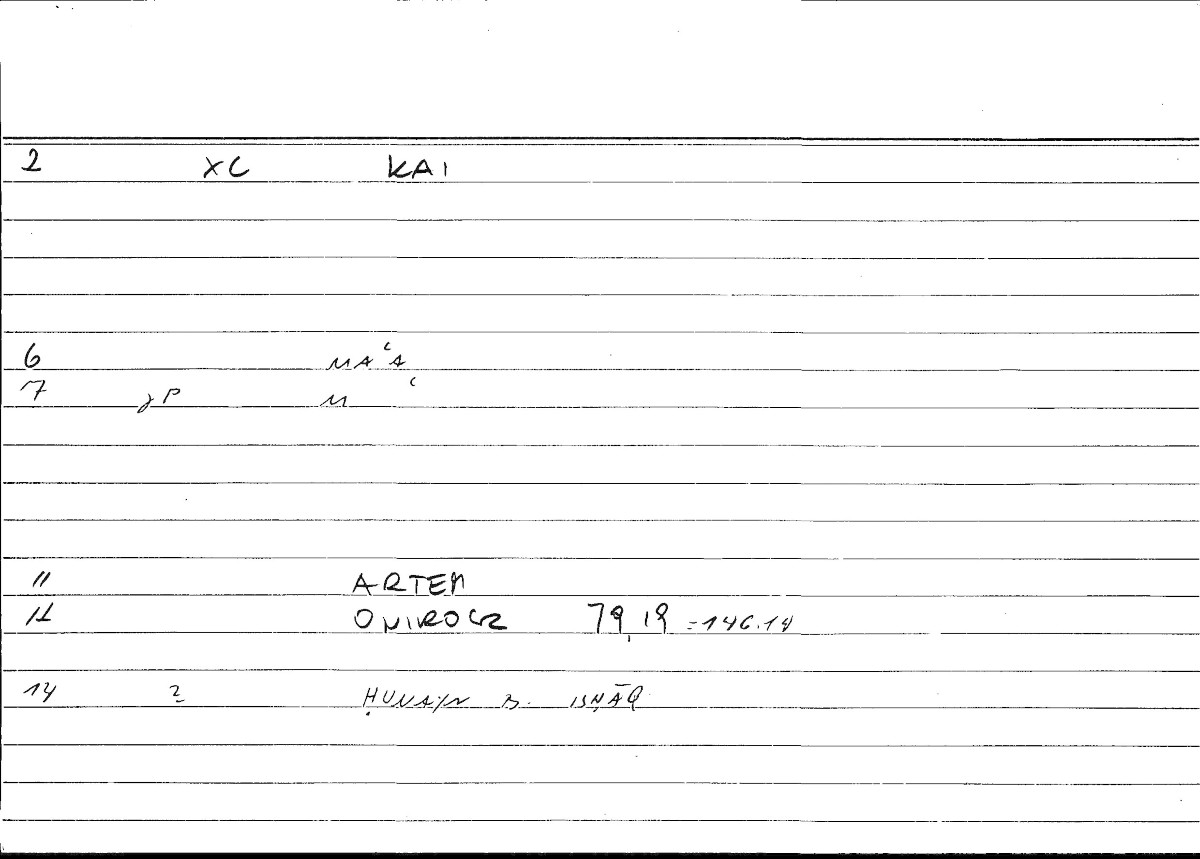 2 XC KAI
6 MAʿA
7 JP M ʿ
11 ARTEM
12 ONIROCR 79,19 =146.14
14 2 ḤUNAYN B. ISḤĀQ